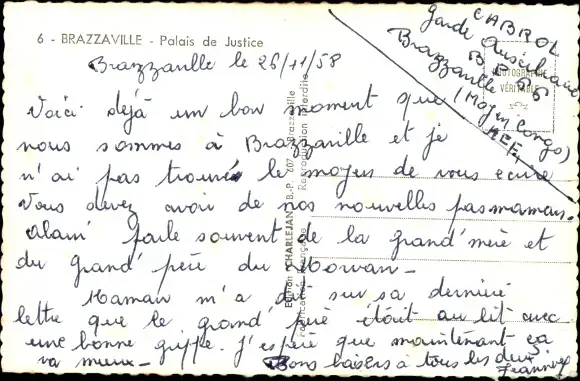 6 - BRAZZAVILLE - Palais de Justice
CABROL
Garde Auxiliaire
B P 65
Brazzaville
(Moyen Congo)
AEF.
PHOTOGRAPHIE
VÉRITABLE
Brazzaville le 26/11/58
Voici déjà un bon moment que
nous sommes à Brazzaville et je
n'ai pas trouvé le moyen de vous écrire
Vous devez avoir de nos nouvelles par maman.
Alain parle souvent de la grand'mère et
du grand'père du Morvan -
Maman m'a dit sur sa dernière
lettre que le grand'père était au lit avec
une bonne grippe. J'espère que maintenant ça
va mieux -
Bons baisers à tous les deux
Jeannine
Edition CHARLEJAN, B.-P. 607, Brazzaville
Reproduction interdite